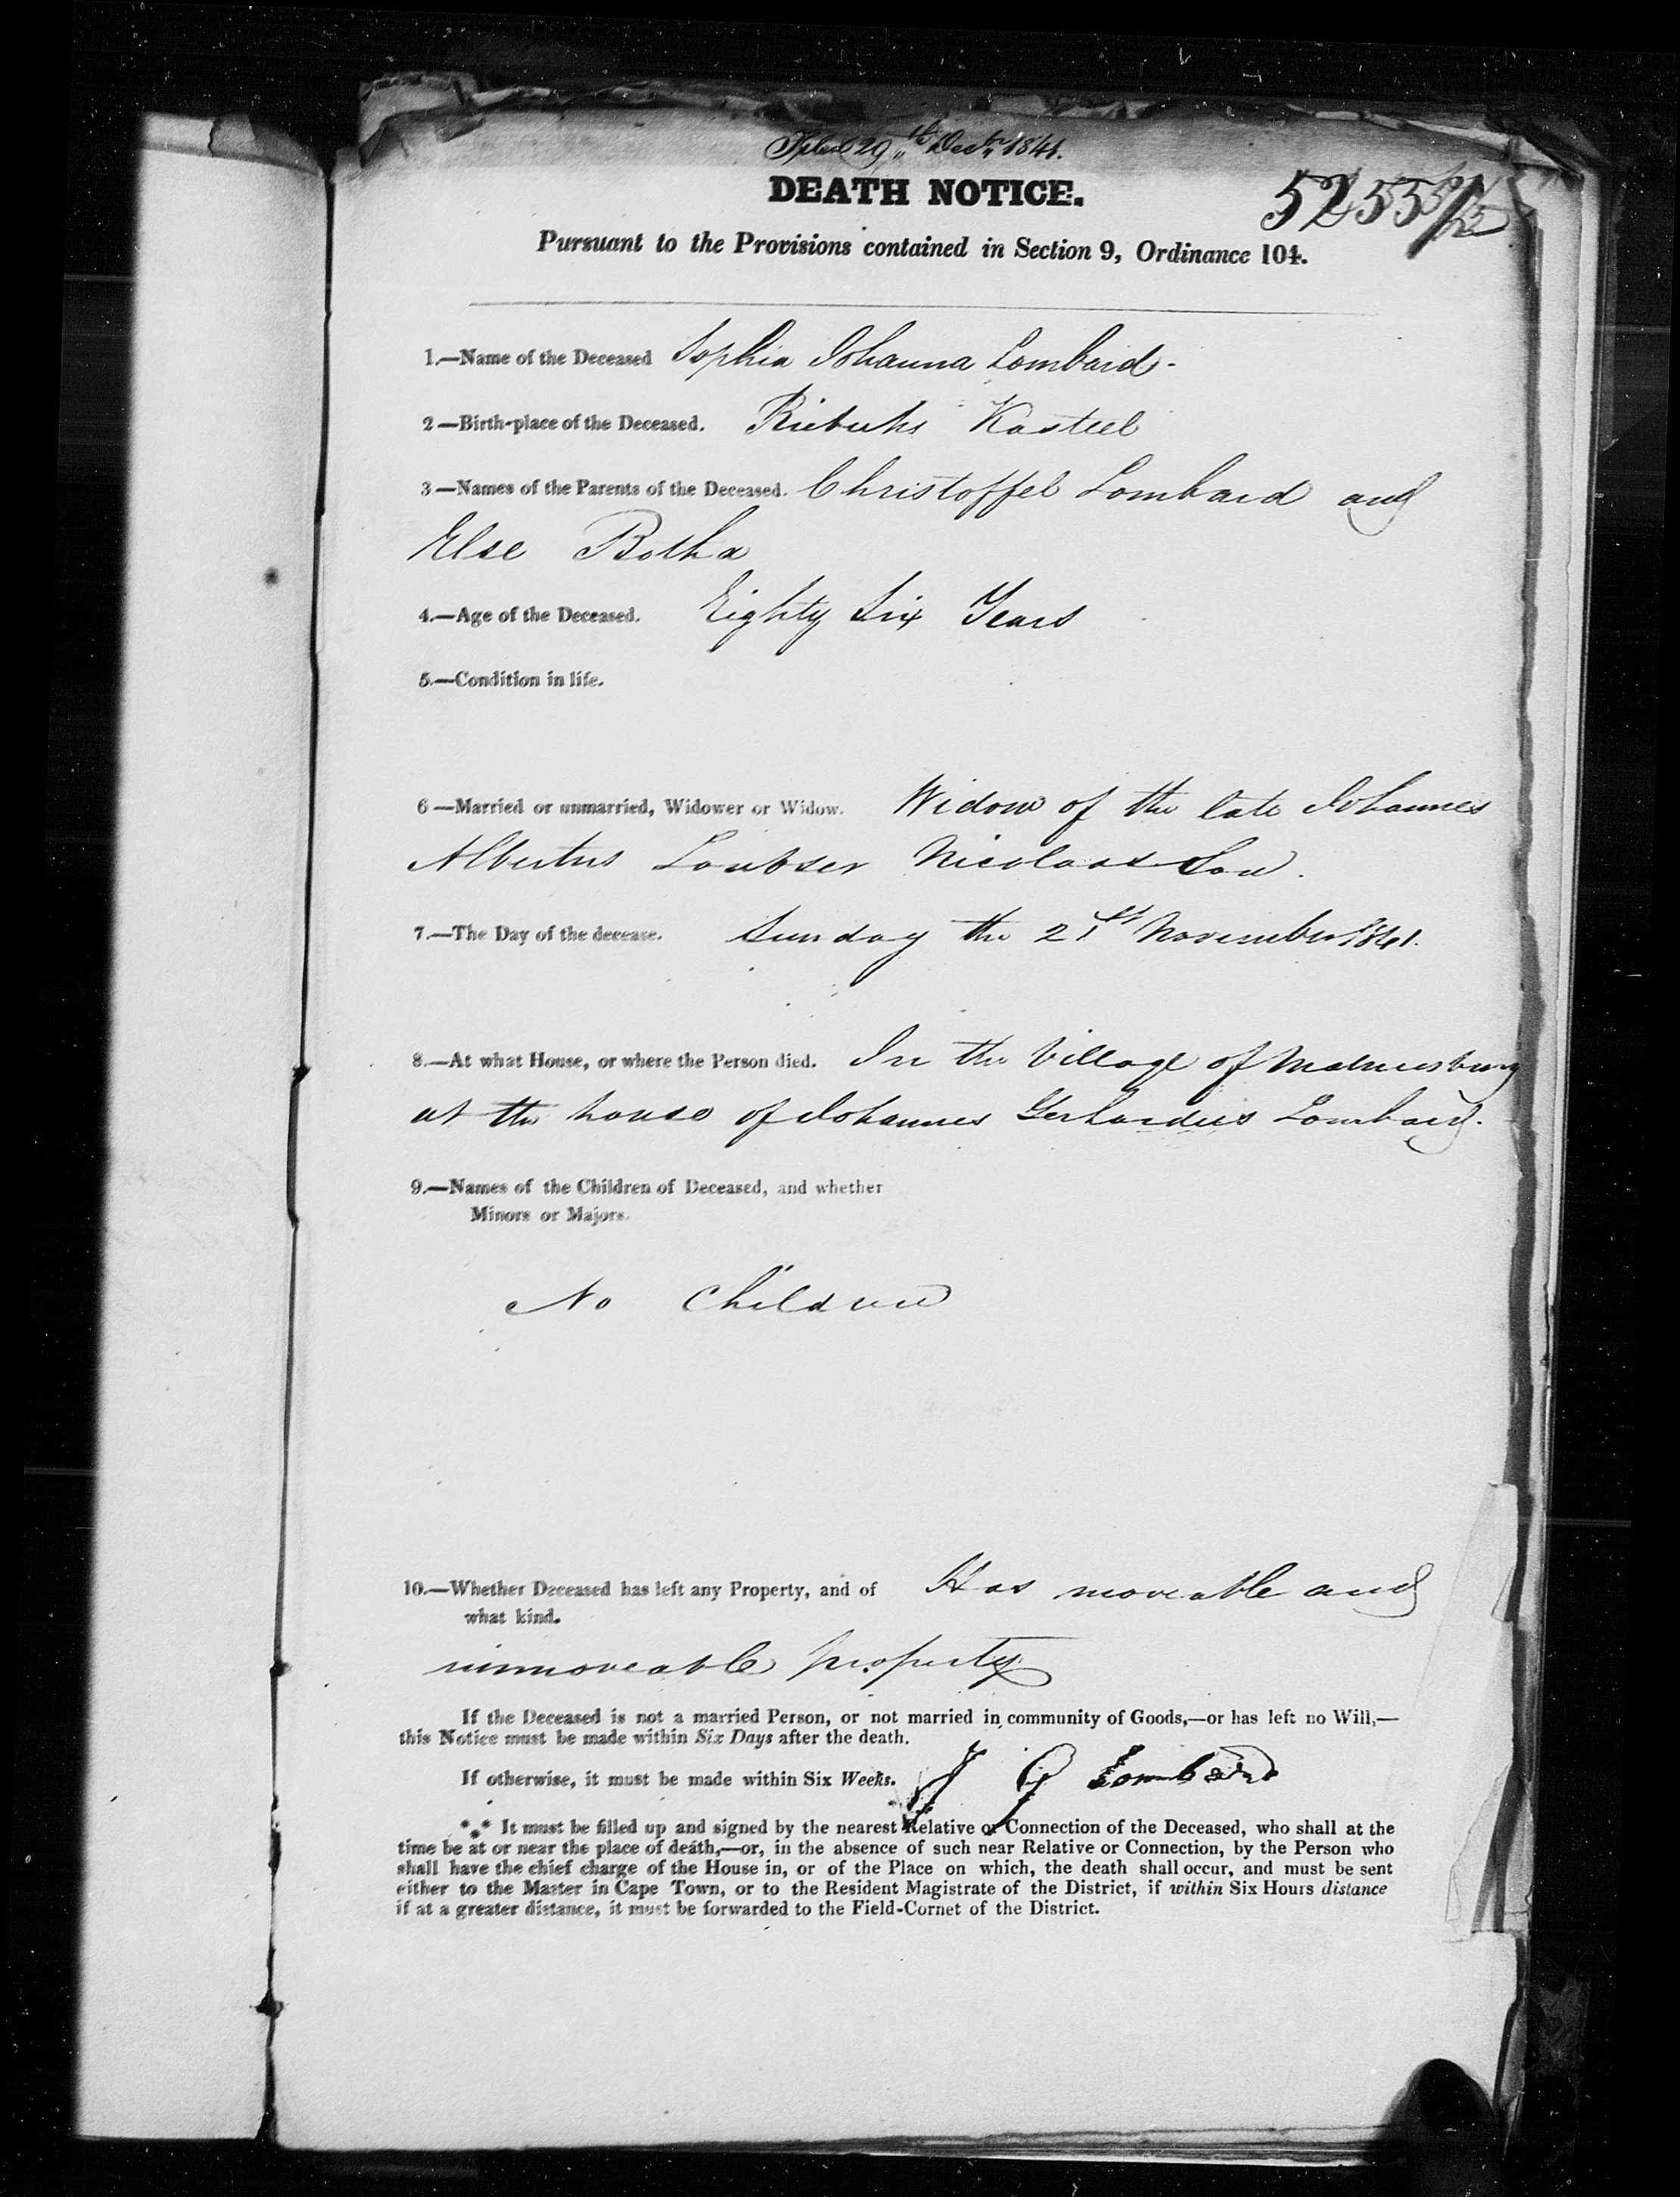 29th Decr 1841.
DEATH NOTICE.
5255
Pursuant to the Provisions contained in Section 9, Ordinance 104.
1.—Name of the Deceased Sophia Johanna Lombard.
2—Birth-place of the Deceased. Riebeeks Kasteel
3—Names of the Parents of the Deceased. Christoffel Lombard and
Else Botha
4.—Age of the Deceased. Eighty Six Years
5.—Condition in life.
6—Married or unmarried, Widower or Widow. Widow of the late Johannes
Albertus Loubser Nicolaas Son.
7.—The Day of the decease. Sunday the 21st November 1841.
8.—At what House, or where the Person died. In the Village of Malmesbury
at the house of Johannes Gerhardus Lombard.
9.—Names of the Children of Deceased, and whether
Minors or Majors.
No Children
10.—Whether Deceased has left any Property, and of Has moveable and
what kind.
immoveable property
If the Deceased is not a married Person, or not married in community of Goods,—or has left no Will,—
this Notice must be made within Six Days after the death.
If otherwise, it must be made within Six Weeks. J G Lombard
*** It must be filled up and signed by the nearest Relative or Connection of the Deceased, who shall at the
time be at or near the place of death,—or, in the absence of such near Relative or Connection, by the Person who
shall have the chief charge of the House in, or of the Place on which, the death shall occur, and must be sent
either to the Master in Cape Town, or to the Resident Magistrate of the District, if within Six Hours distance
if at a greater distance, it must be forwarded to the Field-Cornet of the District.